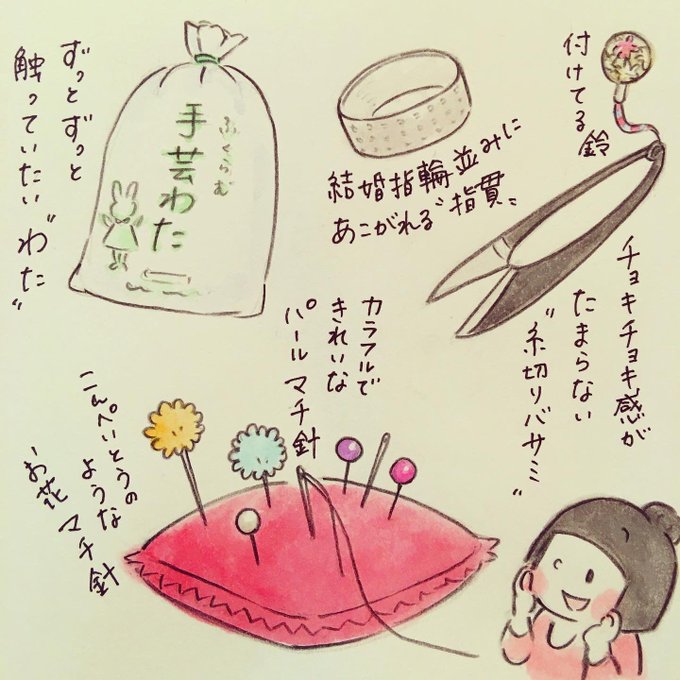 ずっとずっと
触っていたい"わた"
ふくらむ
手芸わた
結婚指輪並みに
あこがれる"指貫"
付けてる鈴
チョキチョキ感が
たまらない
"糸切りバサミ"
カラフルで
きれいな
パールマチ針
こんぺいとうの
ような
お花マチ針